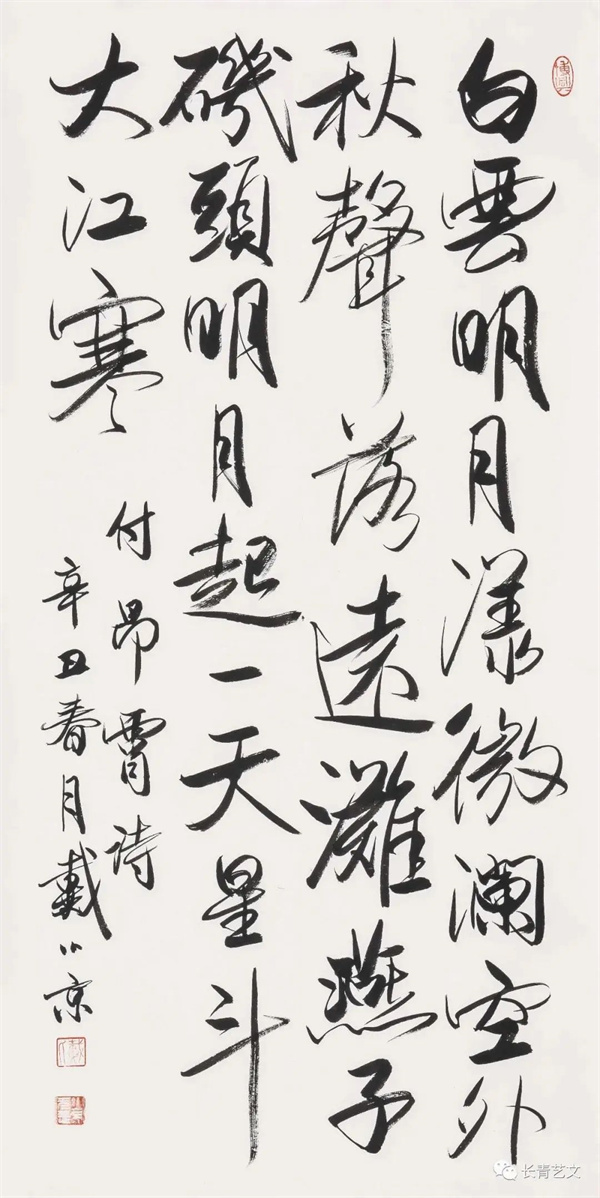 白雲明月漾微瀾空外
秋聲落遠灘燕子
磯頭明月起一天星斗
大江寒
付昂霄詩
辛丑春月戴小京
长青艺文